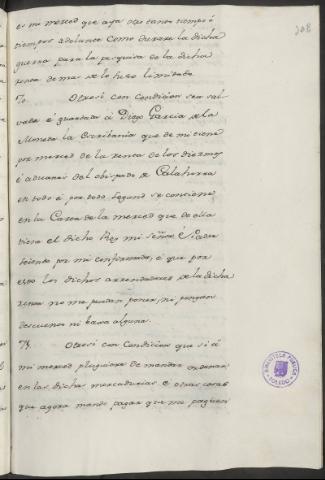 208
es mi merced que aya otro tanto tiempo é
tiempos adelante como durare la dicha
guerra para la pesquisa de la dicha
renta demas de lo suso limitado.
70. Otrosi con condicion sea sal-
vada é guardada á Diego Garcia de la
Moneda la Escribania que de mi tiene
por merced de la renta de los diezmos
é aduanas del obispado de Calahorra
en todo é por todo segund se contiene
en la Carta de la merced que de ella
tiene el dicho Rey mi señor é Padre
é por mi confirmada, é que por
esto los dichos arrendadores de la dicha
renta no me puedan poner, ni pongan
descuento ni baxa alguna.
71. Otrosi con Condicion que si á
mi merced pluguiere de mandar ordenar
en las dichas mercadurias é otras cosas
que agora mando pagar que me paguen
BIBLIOTECA PUBLICA
TOLEDO